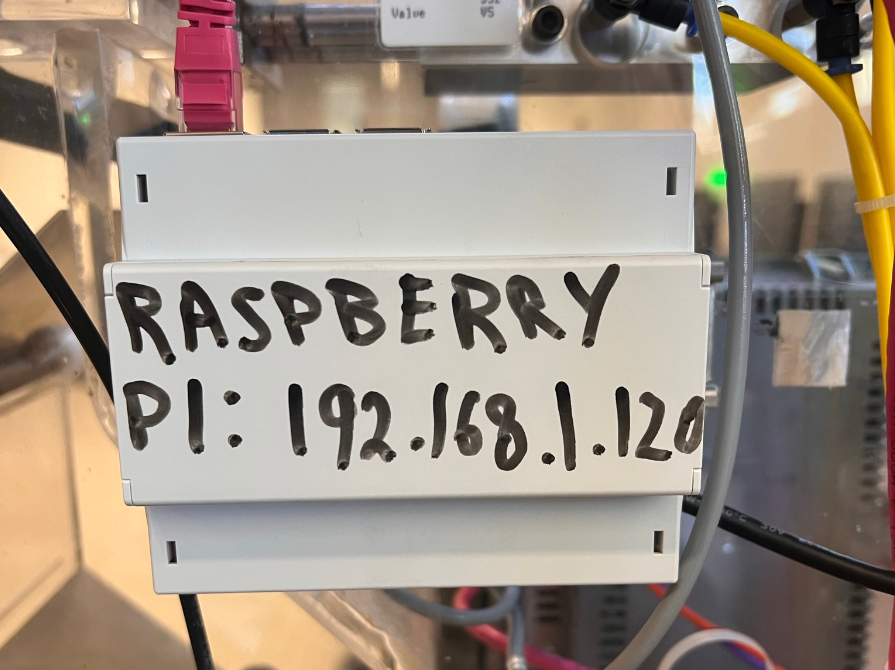 Value
V5
RASPBERRY
PI: 192.168.1.120